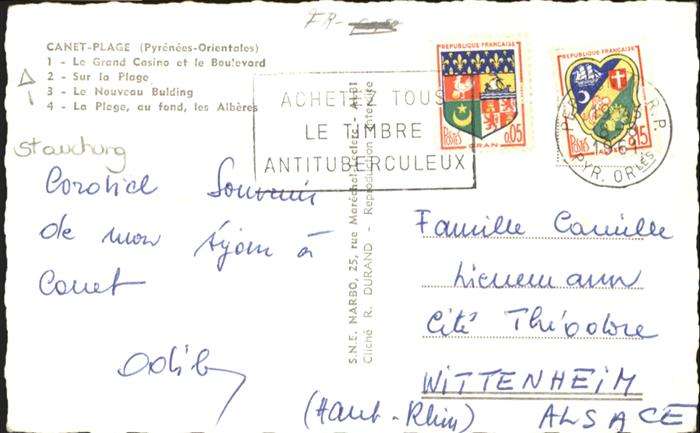 FR-
CANET-PLAGE (Pyrénées-Orientales)
1 - Le Grand Casino et le Boulevard
2 - Sur la Plage
3 - Le Nouveau Bulding
4 - La Plage, au fond, les Albères
ACHETEZ TOUS
LE TIMBRE
ANTITUBERCULEUX
REPUBLIQUE FRANÇAISE
POSTES
0,05
ORAN
REPUBLIQUE FRANÇAISE
POSTES
15
R.P
PYR. OR LES
Cordial Souvenir
de mon séjour à
Canet
S.N.E. NARBO, 25, rue Maréchal-Leclerc - ALBI
Cliché R. DURAND - Reproduction interdite
Famille Camille
Cité Théodore
WITTENHEIM
(Haut-Rhin) ALSACE